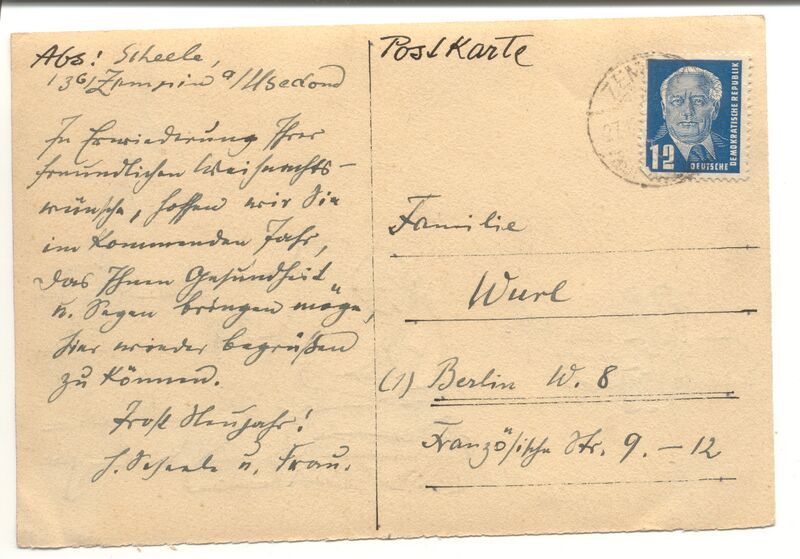 Abs: Scheele,
Zempin a/Usedom
In Erwiederung Ihrer
freundlichen Weihnachts-
wünsche, hoffen wir Sie
im kommenden Jahr,
das Ihnen Gesundheit
u. Segen bringen möge,
hier wieder begrüßen
zu können.
Prost Neujahr!
H. Scheele u. Frau.
Postkarte
ZEM
12
DEUTSCHE
DEMOKRATISCHE REPUBLIK
Familie
Wurl
(1) Berlin W. 8
Französische Str. 9.-12